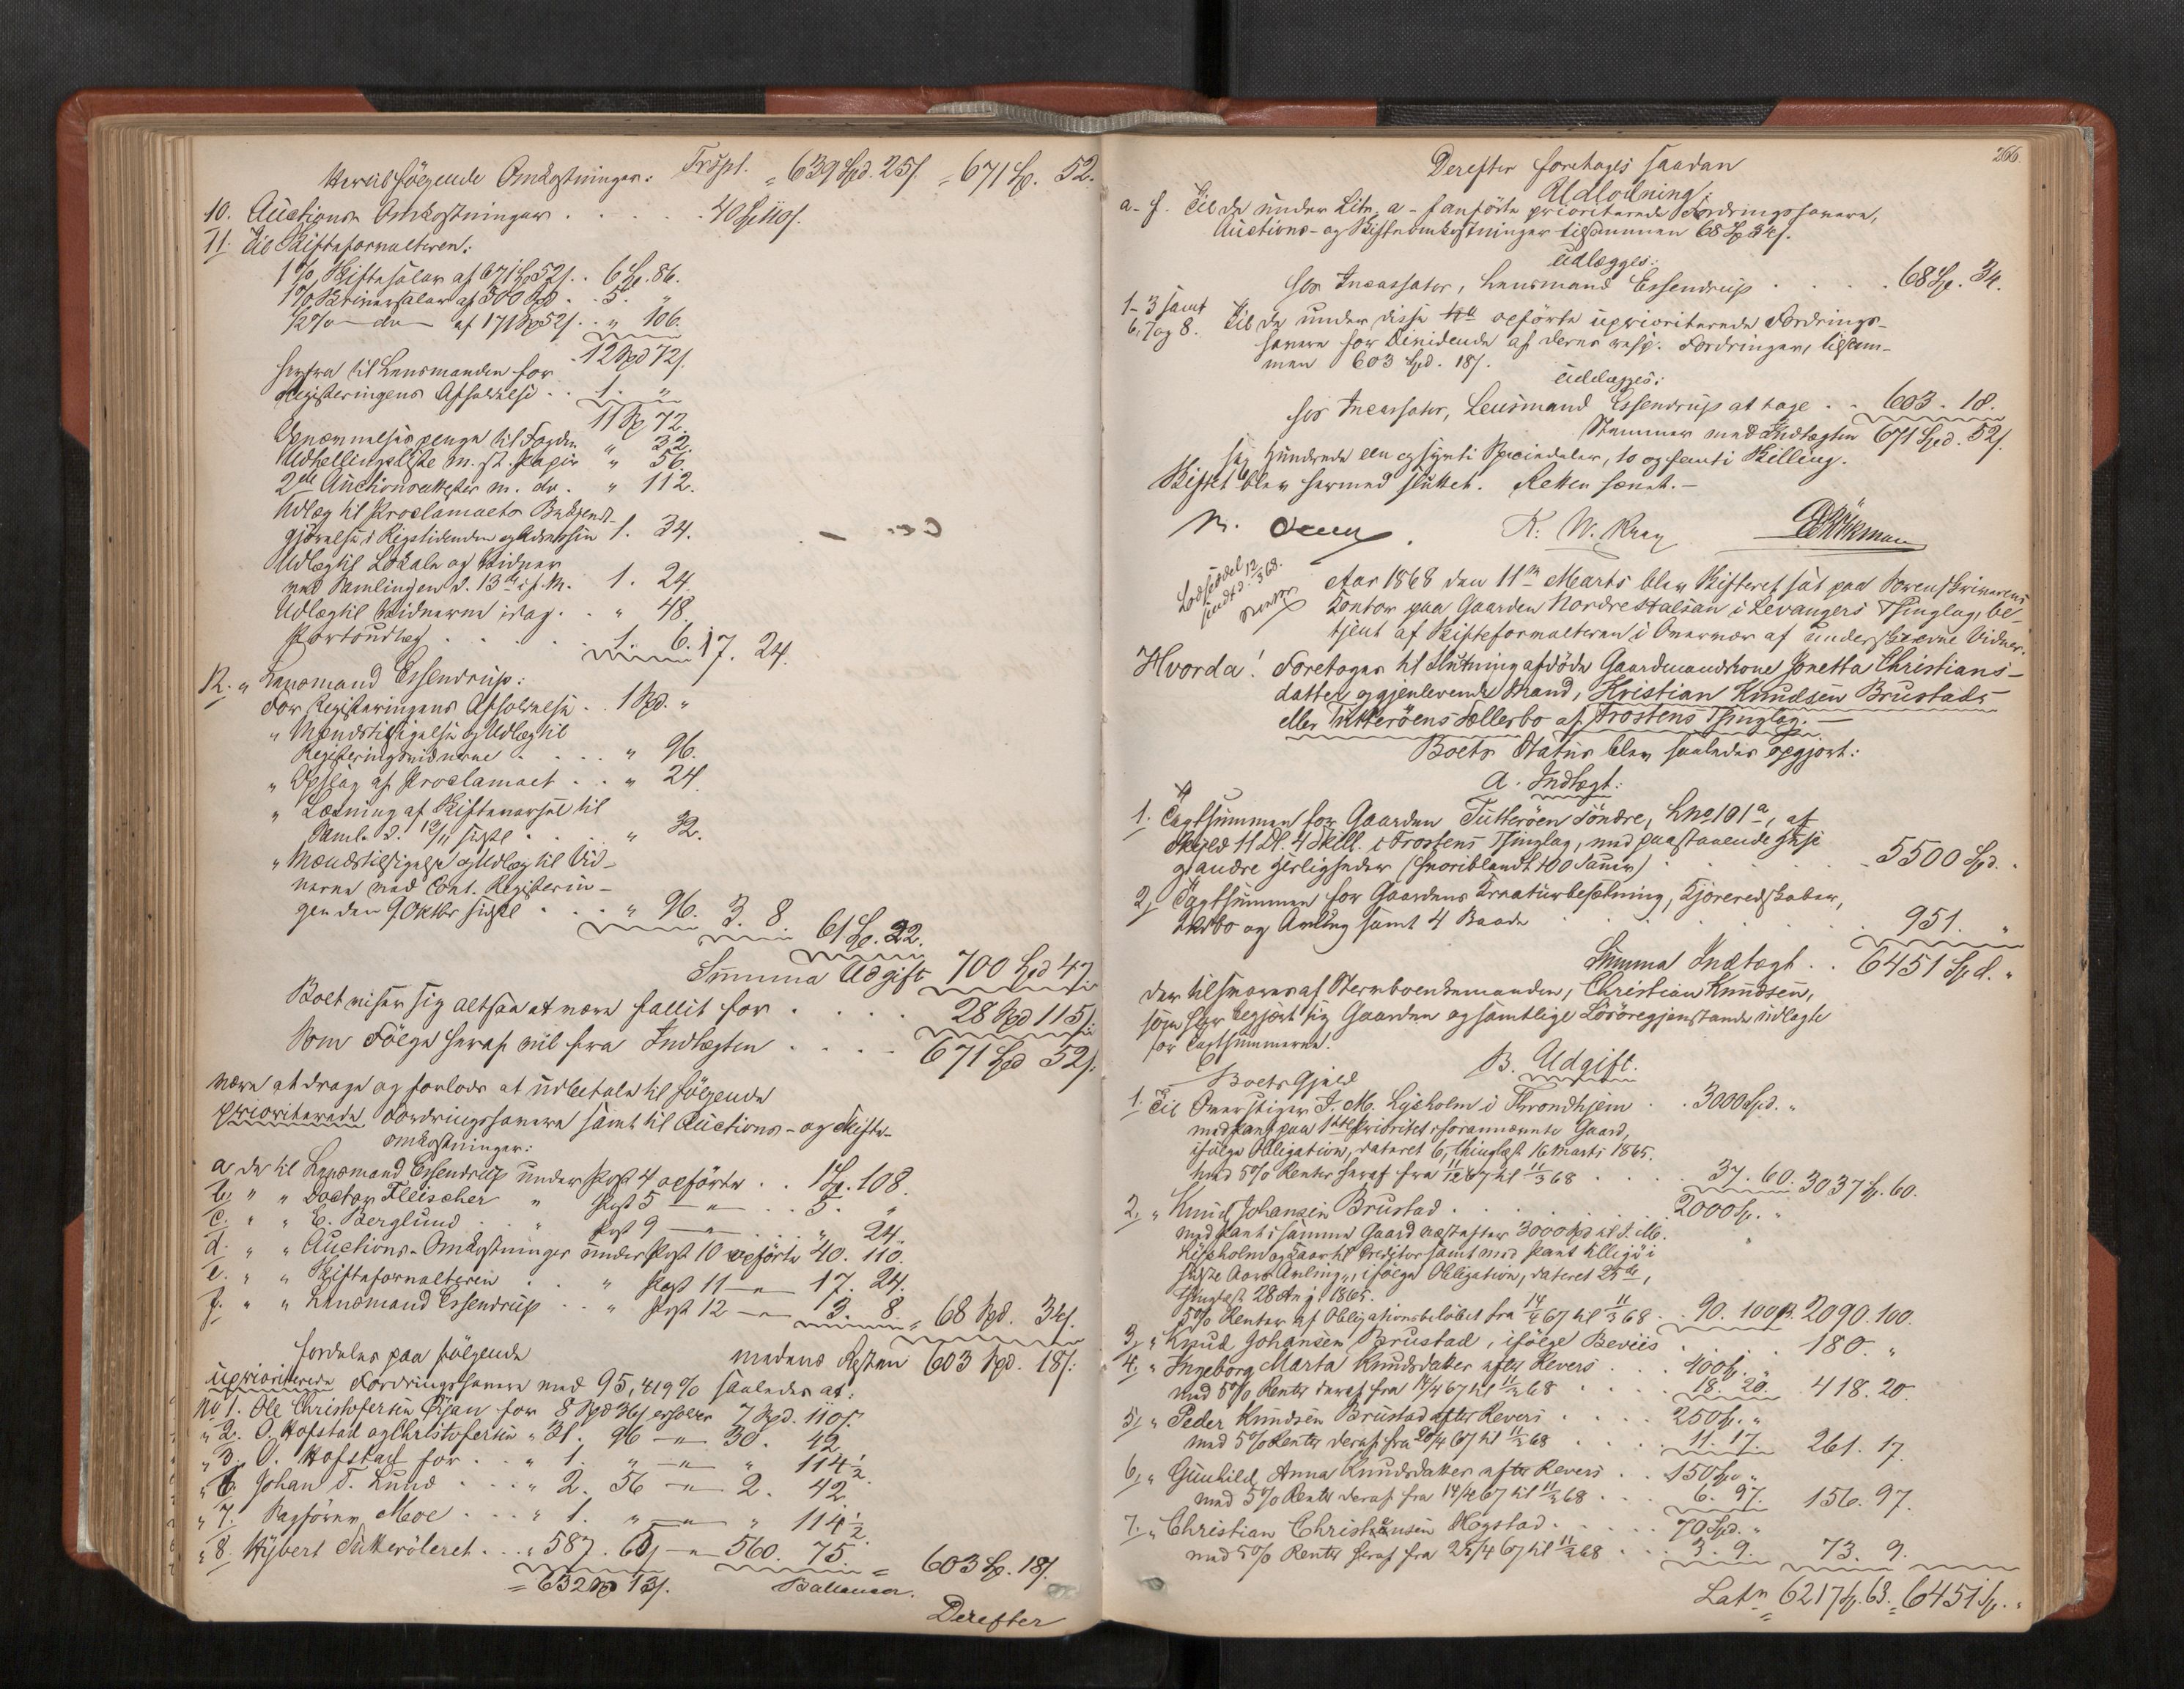 Hertil følgende Omkostninger: Trspt. = 639 Spd. 25 s. = 671 Sp. 52.
10. Auctions Omkostninger . . . . . 40 Sp 110 s.
11. Til Skifteforvalteren:
1 % Skiftesalær af 671 Sp 52 s. . 6 Sp. 86.
1 % Skriversalær af 500 Spd . . 5. "
1/2 % — do — af 171 Sp 52 s. . " 106.
12 Spd 72 s.
herfra til Lensmanden for
Registeringens Afholdelse . . 1. "
11 Sp 72.
Opnævnelsespenge til Fogden " 32.
Udhellingsliste m. st. Papir " 56.
2de Auctionsattester m. do. " 112.
Udlæg til Proclamaets Bekjendt-
gjørelse i Rigstidenden og Adressen 1. 34.
Udlæg til Lokale og Vidner
ved Samlingen d. 13de f. M. 1. 24.
Udlæg til Vidnerne idag . . " 48.
Portoudlæg . . . . . 1. 6. 17. 24.
12. " Lensmand Essendrup:
For Registeringens Afholdelse . . 1 Spd. "
" Mændstilsigelse og Udlæg til
Registeringsvidnerne . . . . " 96.
" Opslag af Proclamaet . . " 24.
" Læsning af Skiftevarsel til
Saml. d. 13/11 sidstl . . . " 32.
" Mændstilsigelse og Udlæg til Vid-
nerne ved Cont. Registerin-
gen den 9 Oktbr sidstl . . . " 96. 3. 8. 61 Sp. 22.
Summa Udgift 700 Spd 47
Boet viser sig altsaa at være fallit for . . . . 28 Spd 115 s.
Som Følge heraf vil fra Indtægten . . . . 671 Spd 52 s.
være at drage og forlods at udbetale til følgende
prioriterede Fordringshavere samt til Auctions- og Skifte-
omkostninger:
a. de til Lensmand Essendrup under Post 4 opførte . . 1 Sp. 108.
b. " " Doctor Fleischer " Post 5 — " — . . 5. "
c. " " E. Berglund . . " Post 9 — " — . . " 24.
d. " " Auctions-Omkostninger under Post 10 opførte 40. 110.
e. " " Skifteforvalteren . . " Post 11 — " — 17. 24.
f. " " Lensmand Essendrup . . " Post 12 — " — 3. 8. = 68 Spd. 34 s.
fordeles paa følgende medens Resten 603 Spd. 18 s.
uprioriterede Fordringshavere med 95,419 % saaledes at:
No 1. Ole Christofersen Øyan for 8 Spd 36 s erholder 7 Spd. 110 s.
" 2. O. Hofstad og Christofersen " 31. 96 — " — 30. 42
" 3. O. Hofstad for . . " 1. " — " — " 114 1/2
" 6. Johan T. Lund . . . " 2. 56 — " — 2. 42.
" 7. Sagfører Moe . . . " 1. " — " — " 114 1/2.
" 8. Hybert Tutterøleret . . . " 587. 65 — " — 560. 75. = 603 Sp. 18 s.
= 632 Sp 13 s. Ballancer.
Derefter
266.
Derefter foretoges saadan
Udlodning:
a-f. Til de under Litr. a-f anførte prioriterede Fordringshavere,
Auctions- og Skifteomkostninger tilsammen 68 Sp 34 s.
udlægges:
hos Incassator, Lensmand Essendrup . . . . 68 Sp. 34.
1-3 samt
6, 7 og 8. Til de under disse No opførte uprioriterede Fordrings-
havere for Dividende af deres resp. Fordringer, tilsam-
men 603 Spd. 18 s.
udlægges:
hos Incassator, Lensmand Essendrup at tage . . 603. 18.
Stemmer med Indtægten 671 Spd. 52 s.
sex Hundrede een og sytti Speciedaler, to og femti Skilling.
Skiftet blev hermed sluttet. Retten hævet. —
K. W. Krag
Lodsedel
sendt d. 12/3 68.
Aar 1868 den 11te Marts blev Skifteret sat paa Sorenskriverens
Kontor paa Gaarden Nordre Stalsan i Levangers Thinglag, be-
tjent af Skifteforvalteren i Overvær af underskrevne Vidner.
Hvorda! Foretoges til Slutning afdøde Gaardmandskone Jonetta Christians-
datter og gjenlevende Mand, Kristian Knudsen Brustads
eller Tutterøens Fællesbo af Frostens Thinglag. —
Boets Status blev saaledes opgjort:
A. Indtægt:
1. Taxtsummen for Gaarden Tutterøen Søndre, L No 101 a, af
Skyld 11 Dl. 4 Skill. i Frostens Thinglag, med paastaaende Huse
og andre Herligheder (hvoriblandt 100 Sauer) . . . 5500 Spd. "
2, Taxtsummen for Gaardens Kreaturbesætning, Kjøreredskaber,
Indbo og Avling samt 4 Baade . . . . . 951. "
Summa Indtægt . . 6451 Spd. "
der tilsvares af Stervboenkemanden, Christian Knudsen,
som har begjært sig Gaarden og samtlige Løsøregjenstande udlagte
for Taxtsummerne.
B. Udgift.
Boets Gjæld
1. Til Overstiger J. M. Lysholm i Throndhjem . . 3000 Spd. "
med Pant paa 1ste Prioritet i forannævnte Gaard,
ifølge Obligation, dateret 6, thinglæst 16 Marts 1865.
med 5 % Renter heraf fra 11/12 67 til 11/3 68 . . . . 37. 60. 3037 Sp. 60.
2. " Knud Johansen Brustad . . . . . . 2000 Sp. "
med Pant i samme Gaard næstefter 3000 Spd til J. M.
Lysholm og Kaar til Creditor samt med Pant tilligei i
sidste Aars Avling, ifølge Obligation, dateret 25de,
thinglæst 28 Aug. 1865.
5 % Renter af Obligationsbeløbet fra 14/4 67 til 11/3 68 . . 90. 100 s. 2090. 100.
3, " Knud Johansen Brustad, ifølge Beviis . . . . 180. "
4, " Ingeborg Marta Knudsdatter efter Revers . . 400 Sp. "
med 5 % Renter deraf fra 14/4 67 til 11/3 68 . . . . 18. 20. 418. 20.
5, " Peder Knudsen Brustad efter Revers . . . . 250 Sp. "
med 5 % Renter deraf fra 20/4 67 til 11/3 68 . . . . 11. 17. 261. 17.
6, " Gunhild Anna Knudsdatter efter Revers . . 150 Sp "
med 5 % Renter deraf fra 14/4 67 til 11/3 68 . . . 6. 97. 156. 97.
7. " Christian Christensen Hogstad . . . . . 70 Spd. "
med 5 % Renter heraf fra 25/4 67 til 11/3 68 . . . 3. 9. 73. 9.
Lats 6217 Sp. 63. = 6451 Sp. "